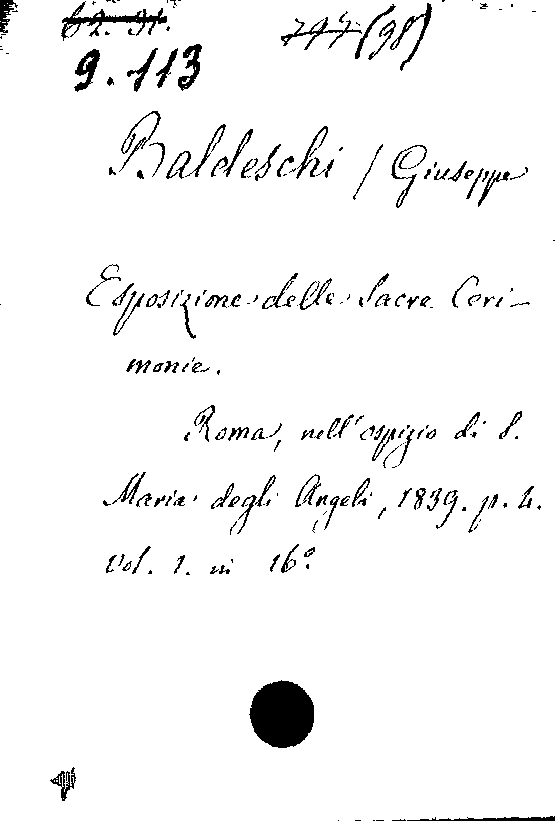 62. 31. 747 (98)
9.113
Baldeschi / Giuseppe
Esposizione delle Sacre Ceri-
monie.
Roma, nell'ospizio di S.
Maria degli Angeli, 1839. p. 4.
Vol. 1. in 16°